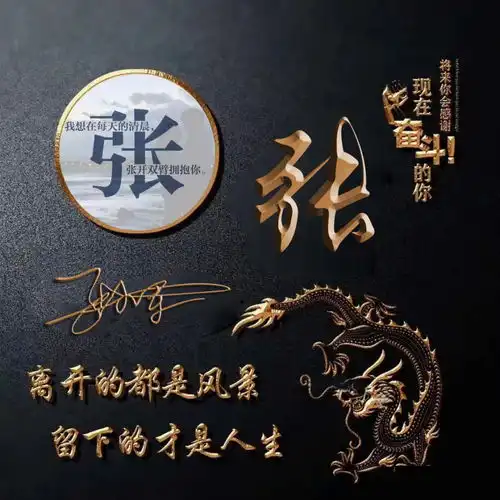 我想在每天的清晨,
张
张开双臂拥抱你。
张
将来你会感谢
现在
奋斗!
的你
离开的都是风景
留下的才是人生